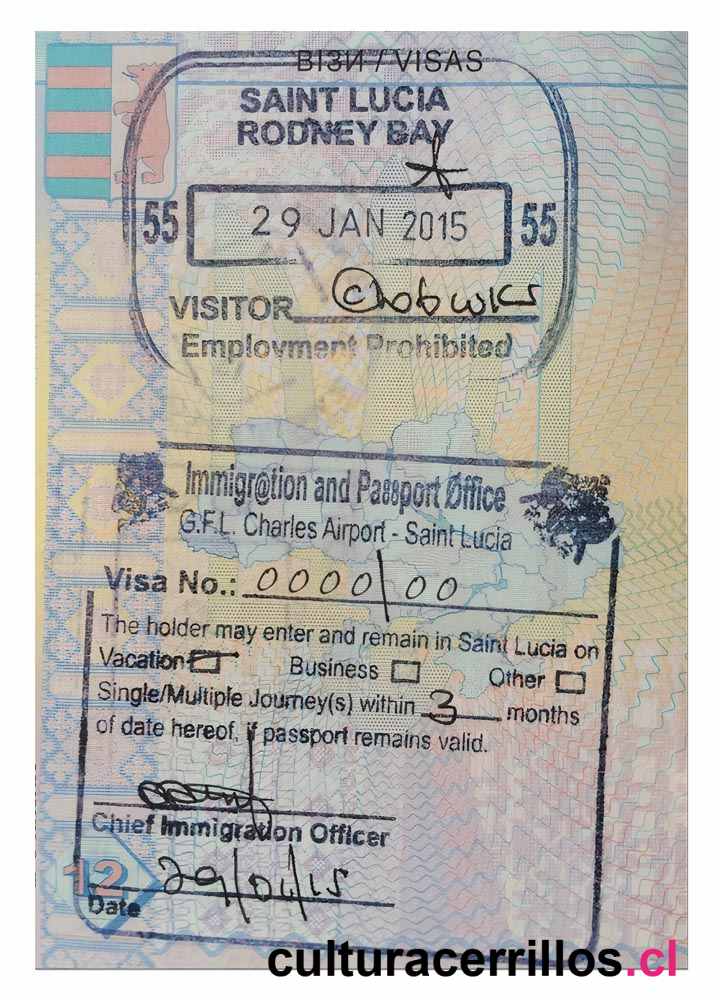 ВІЗИ / VISAS
SAINT LUCIA
RODNEY BAY
55 29 JAN 2015 55
VISITOR
Employment Prohibited
Immigr@tion and Passport Office
G.F.L. Charles Airport - Saint Lucia
Visa No.: 0000/00
The holder may enter and remain in Saint Lucia on
Vacation Business Other
Single/Multiple Journey(s) within 3 months
of date hereof, if passport remains valid.
Chief Immigration Officer
29/01/15
12
Date
culturacerrillos.cl